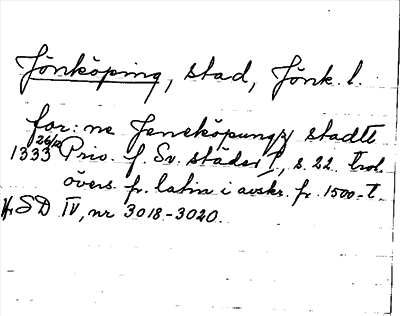 Jönköping, stad, Jönk. l.
for: ne Jeneköpungx stadt
26/2
1333 Priv. f. Sv. städer I, s. 22. trol.
övers. fr. latin i avskr. fr. 1500-t.
SD IV, nr 3018-3020.